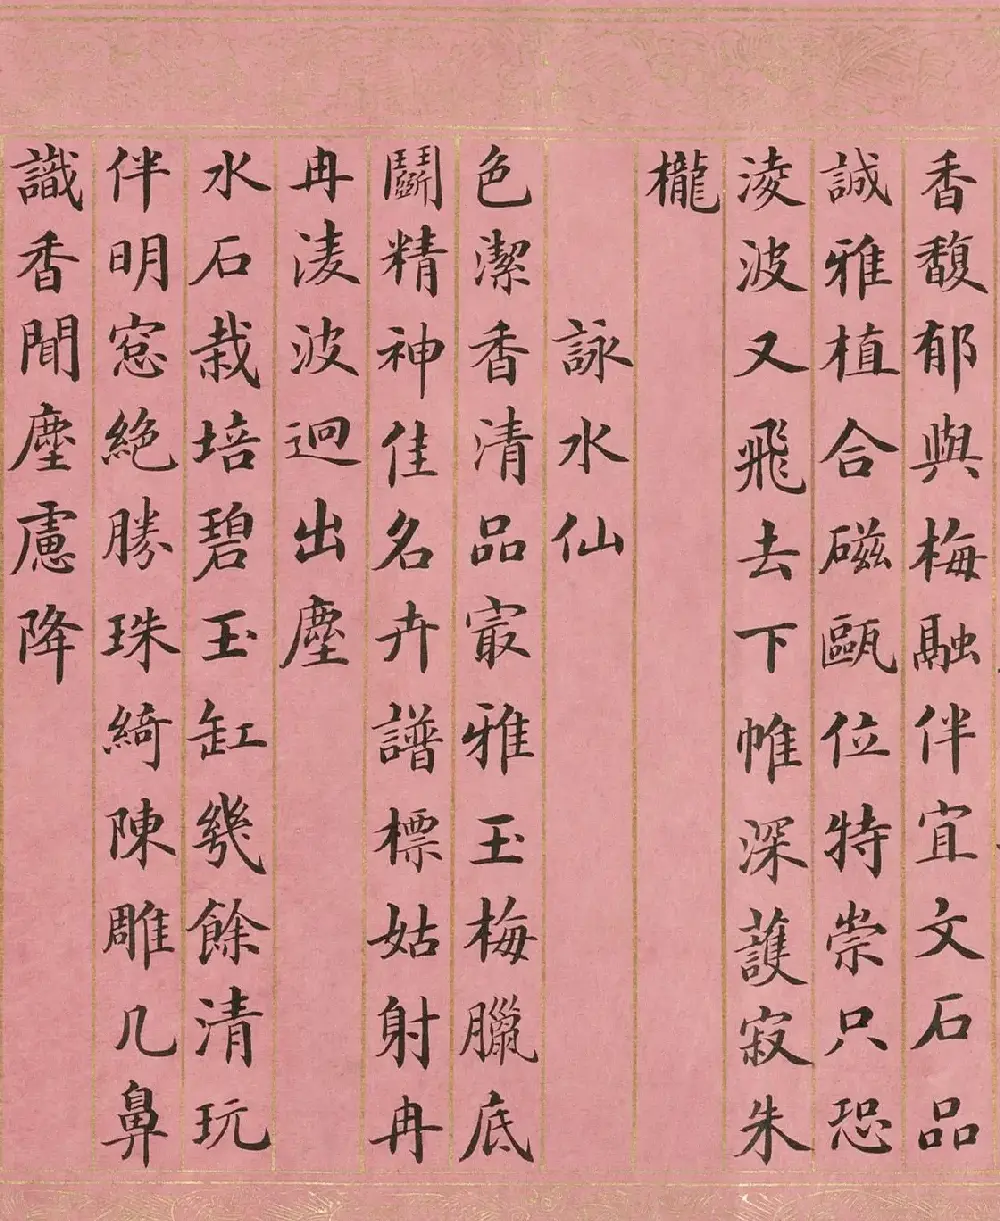 香馥郁與梅融伴宜文石品
誠雅植合磁甌位特崇只恐
淩波又飛去下帷深護寂朱
櫳
詠水仙
色潔香清品㝡雅玉梅臘底
鬭精神佳名卉譜標姑射冉
冉淩波迥出塵
水石栽培碧玉缸幾餘清玩
伴明窓絕勝珠綺陳雕几鼻
識香聞塵慮降